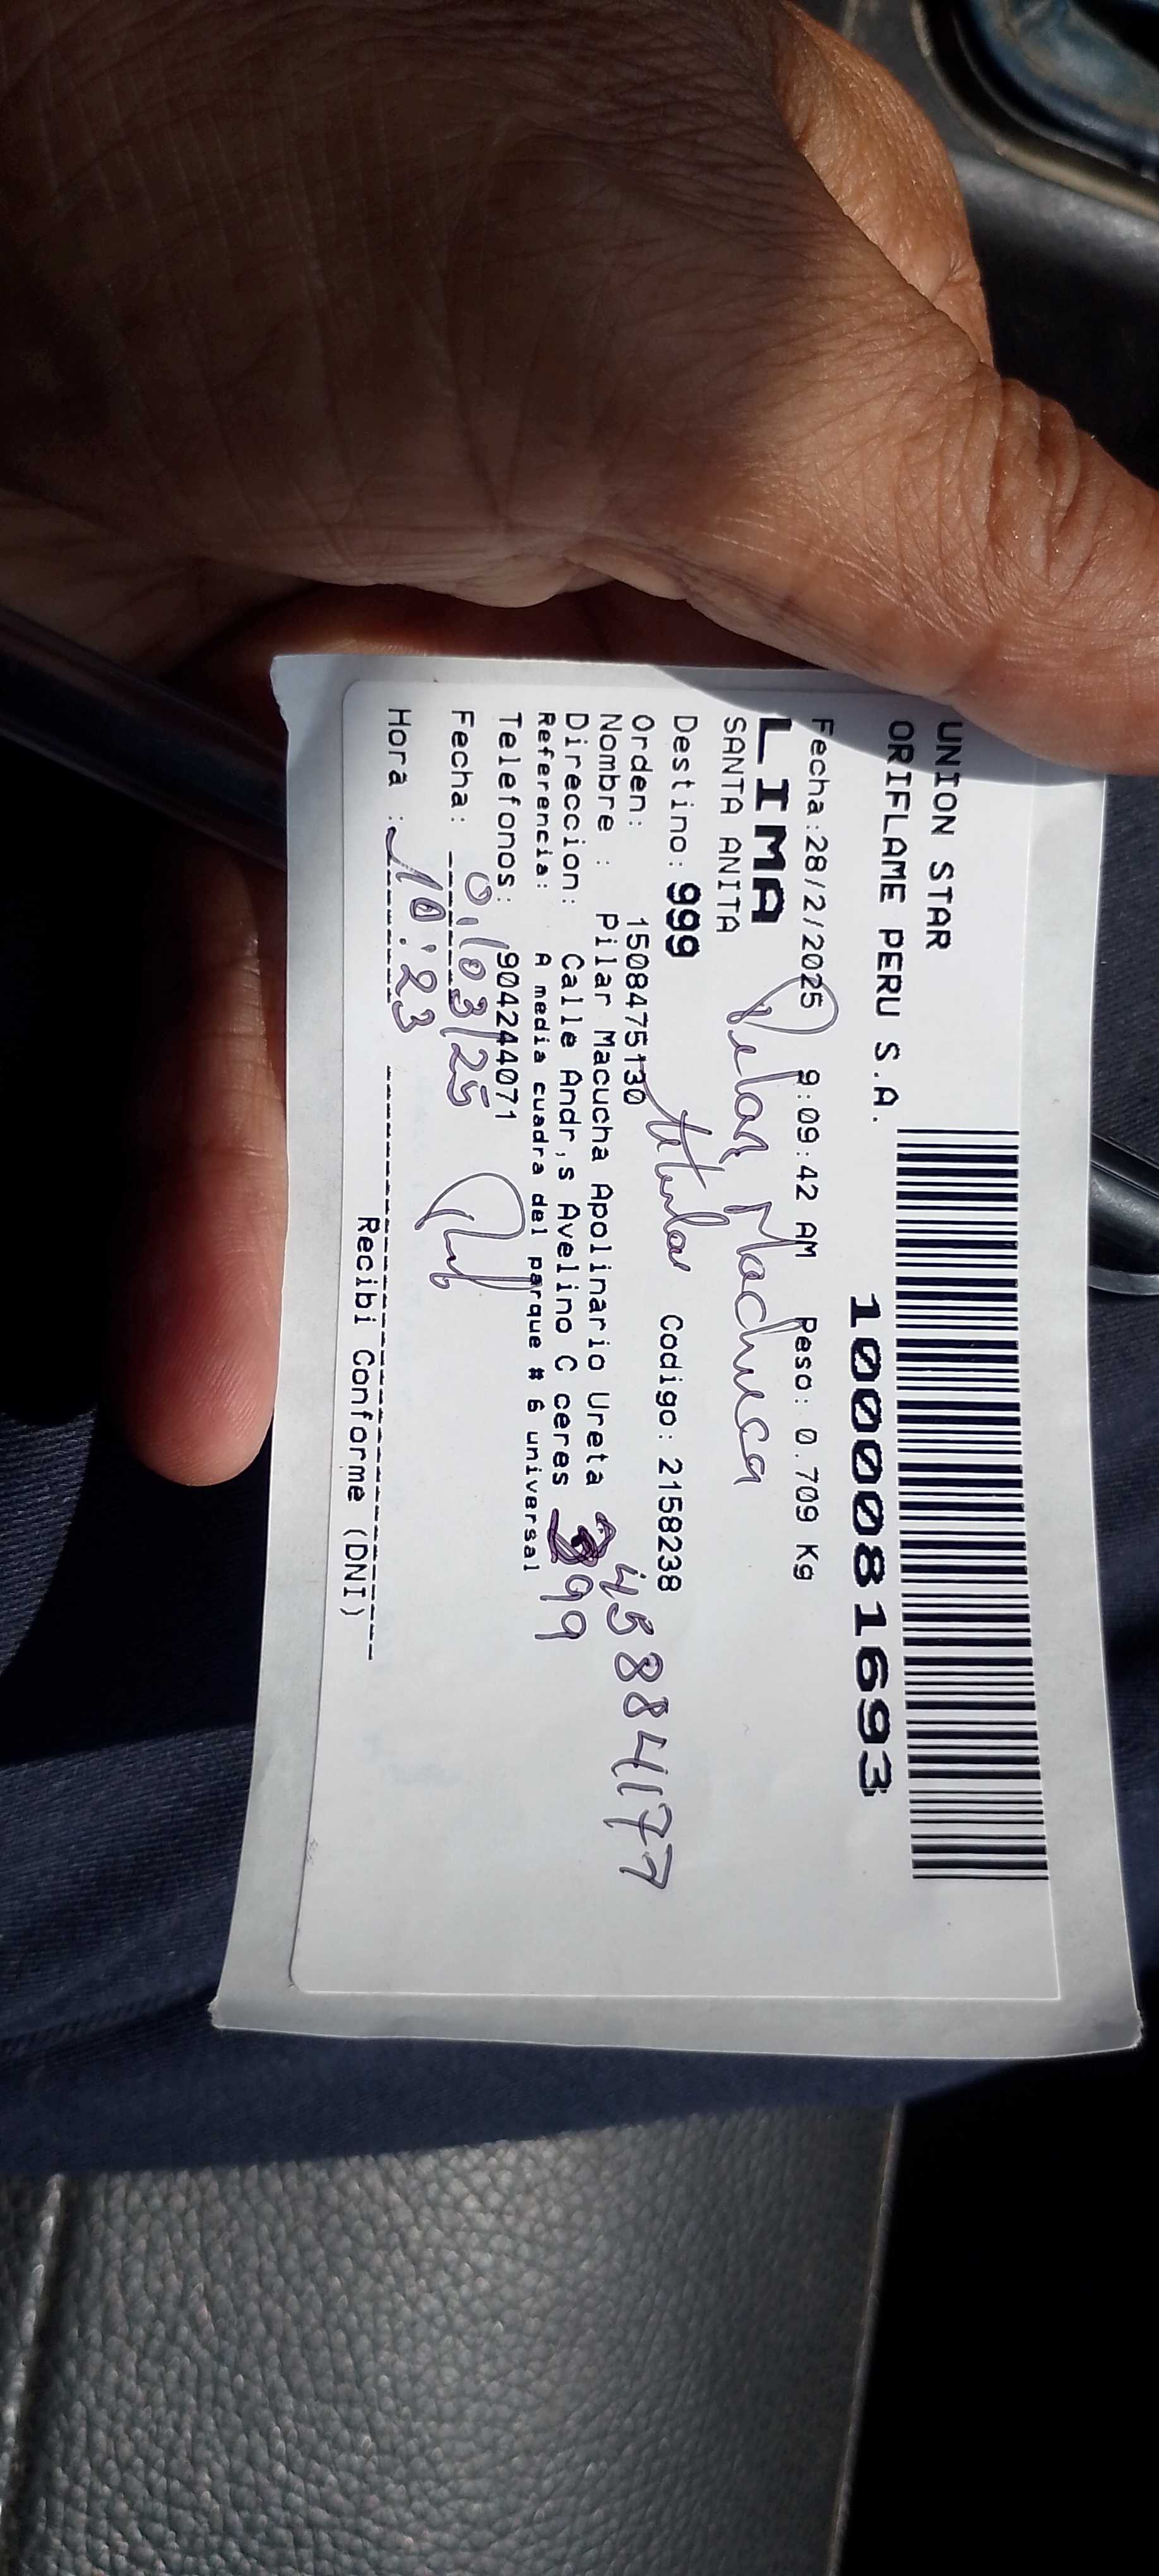 UNION STAR
ORIFLAME PERU S.A.
1000081693
Fecha:28/2/2025 9:09:42 AM Peso: 0.709 Kg
LIMA
Pilar Machuca
SANTA ANITA
Destino: 999 titular Codigo: 2158238
Orden: 1508475130
45884177
Nombre : Pilar Macucha Apolinario Ureta
Direccion: Calle Andr,s Avelino C ceres 399
Referencia: A media cuadra del parque # 6 universal
Telefonos: 904244071
Fecha: 01/03/25
Hora : 10:23
Recibi Conforme (DNI)